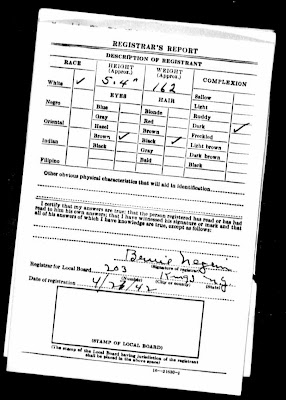 REGISTRAR'S REPORT
DESCRIPTION OF REGISTRANT
RACE HEIGHT (Approx.) WEIGHT (Approx.) COMPLEXION
White ✓ 5.4" 162 Sallow
EYES HAIR Light
Negro Blue Blonde Ruddy
Gray Red Dark ✓
Oriental Hazel Brown Freckled
Brown ✓ Black ✓ Light brown
Indian Black Gray Dark brown
Filipino Bald Black
Other obvious physical characteristics that will aid in identification
I certify that my answers are true; that the person registered has read or has had
read to him his own answers; that I have witnessed his signature or mark and that
all of his answers of which I have knowledge are true, except as follows:
Bernie
(Signature of registrar)
Registrar for Local Board 203 Kings N.Y.
(Number) (City or county) (State)
Date of registration 4/26/42
(STAMP OF LOCAL BOARD)
(The stamp of the Local Board having jurisdiction of the registrant
shall be placed in the above space)
16—21630-2